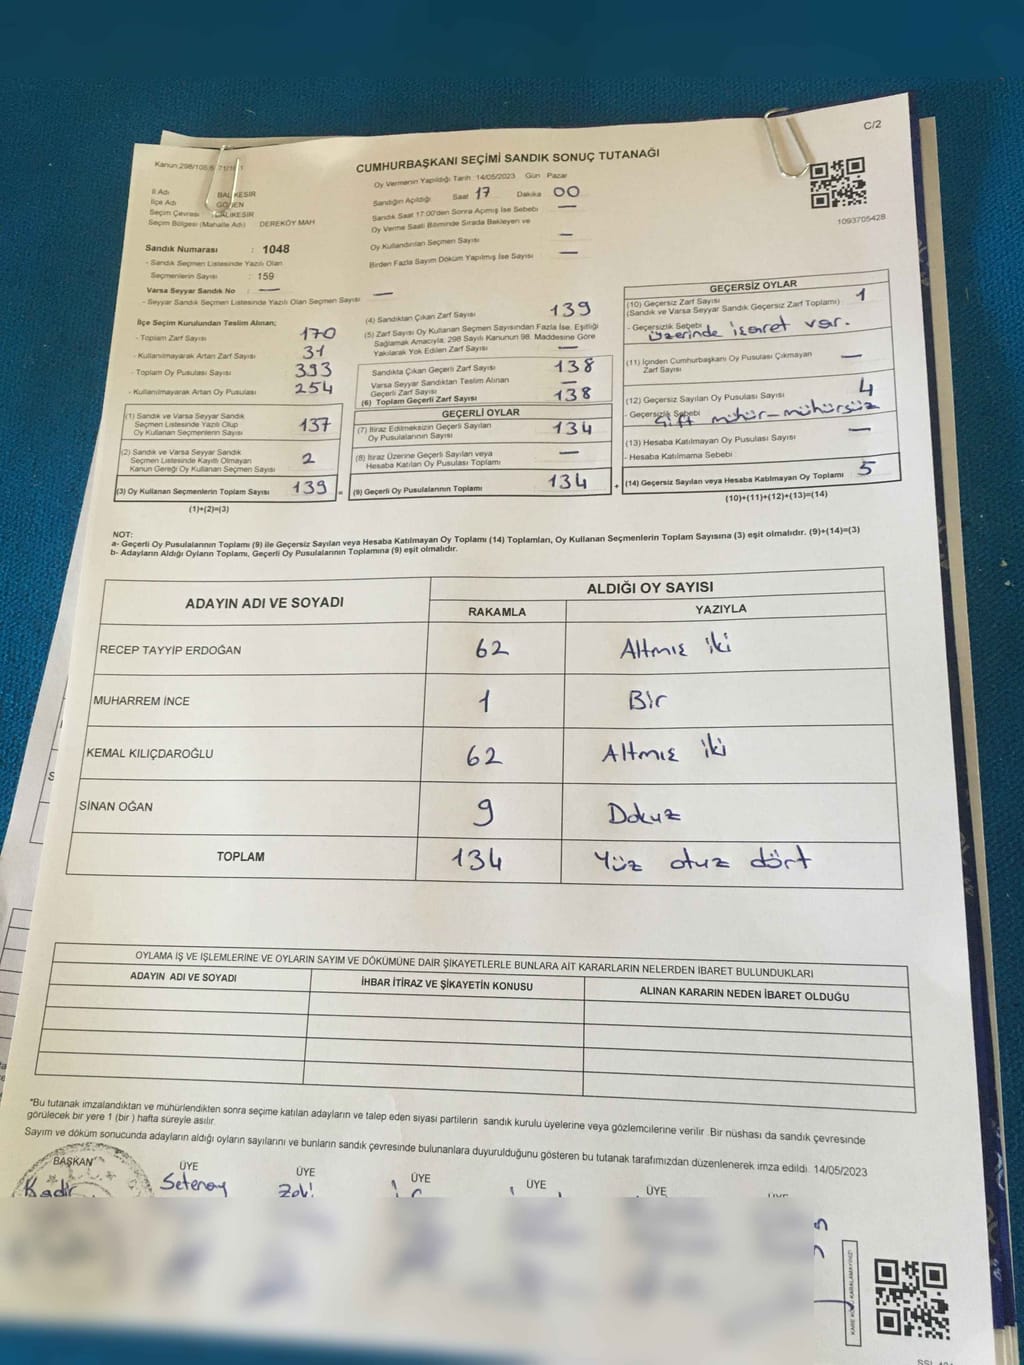 C/2
CUMHURBAŞKANI SEÇİMİ SANDIK SONUÇ TUTANAĞI
Oy Vermenin Yapıldığı Tarih :14/05/2023 Gün Pazar
Sandığın Açıldığı Saat 17 Dakika 00
Sandık Saat 17:00'den Sonra Açımış İse Sebebi —
Oy Verme Saati Bitiminde Sırada Bekleyen ve
Oy Kullandırılan Seçmen Sayısı —
Birden Fazla Sayım Döküm Yapılmış İse Sayısı —
1093705428
İl Adı BALIKESİR
İlçe Adı GÖNEN
Seçim Çevresi BALIKESİR
Seçim Bölgesi (Mahalle Adı) DEREKÖY MAH
Sandık Numarası : 1048
- Sandık Seçmen Listesinde Yazılı Olan
Seçmenlerin Sayısı : 159
Varsa Seyyar Sandık No : —
- Seyyar Sandık Seçmen Listesinde Yazılı Olan Seçmen Sayısı —
İlçe Seçim Kurulundan Teslim Alınan;
- Toplam Zarf Sayısı 170
- Kullanılmayarak Artan Zarf Sayısı 31
- Toplam Oy Pusulası Sayısı 393
- Kullanılmayarak Artan Oy Pusulası 254
(1) Sandık ve Varsa Seyyar Sandık
Seçmen Listesinde Yazılı Olup
Oy Kullanan Seçmenlerin Sayısı 137
(2) Sandık ve Varsa Seyyar Sandık
Seçmen Listesinde Kayıtlı Olmayan
Kanun Gereği Oy Kullanan Seçmen Sayısı 2
(3) Oy Kullanan Seçmenlerin Toplam Sayısı 139 =
(1)+(2)=(3)
(4) Sandıktan Çıkan Zarf Sayısı 139
(5) Zarf Sayısı Oy Kullanan Seçmen Sayısından Fazla İse, Eşitliği
Sağlamak Amacıyla, 298 Sayılı Kanunun 98. Maddesine Göre
Yakılarak Yok Edilen Zarf Sayısı —
Sandıkta Çıkan Geçerli Zarf Sayısı 138
Varsa Seyyar Sandıktan Teslim Alınan
Geçerli Zarf Sayısı —
(6) Toplam Geçerli Zarf Sayısı 138
GEÇERLİ OYLAR
(7) İtiraz Edilmeksizin Geçerli Sayılan
Oy Pusulalarının Sayısı 134
(8) İtiraz Üzerine Geçerli Sayılan veya
Hesaba Katılan Oy Pusulası Toplamı —
(9) Geçerli Oy Pusulalarının Toplamı 134 +
GEÇERSİZ OYLAR
(10) Geçersiz Zarf Sayısı 1
(Sandık ve Varsa Seyyar Sandık Geçersiz Zarf Toplamı)
- Geçersizlik Sebebi
üzerinde işaret var.
(11) İçinden Cumhurbaşkanı Oy Pusulası Çıkmayan
Zarf Sayısı —
(12) Geçersiz Sayılan Oy Pusulası Sayısı 4
- Geçersizlik Sebebi
Çift mühür-mühürsüz
(13) Hesaba Katılmayan Oy Pusulası Sayısı —
- Hesaba Katılmama Sebebi
(14) Geçersiz Sayılan veya Hesaba Katılmayan Oy Toplamı 5
(10)+(11)+(12)+(13)=(14)
NOT:
a- Geçerli Oy Pusulalarının Toplamı (9) ile Geçersiz Sayılan veya Hesaba Katılmayan Oy Toplamı (14) Toplamları, Oy Kullanan Seçmenlerin Toplam Sayısına (3) eşit olmalıdır. (9)+(14)=(3)
b- Adayların Aldığı Oyların Toplamı, Geçerli Oy Pusulalarının Toplamına (9) eşit olmalıdır.
ADAYIN ADI VE SOYADI
ALDIĞI OY SAYISI
RAKAMLA YAZIYLA
RECEP TAYYİP ERDOĞAN 62 Altmış iki
MUHARREM İNCE 1 Bir
KEMAL KILIÇDAROĞLU 62 Altmış iki
SİNAN OĞAN 9 Dokuz
TOPLAM 134 Yüz otuz dört
OYLAMA İŞ VE İŞLEMLERİNE VE OYLARIN SAYIM VE DÖKÜMÜNE DAİR ŞİKAYETLERLE BUNLARA AİT KARARLARIN NELERDEN İBARET BULUNDUKLARI
ADAYIN ADI VE SOYADI İHBAR İTİRAZ VE ŞİKAYETİN KONUSU ALINAN KARARIN NEDEN İBARET OLDUĞU
*Bu tutanak imzalandıktan ve mühürlendikten sonra seçime katılan adayların ve talep eden siyasi partilerin sandık kurulu üyelerine veya gözlemcilerine verilir. Bir nüshası da sandık çevresinde
görülecek bir yere 1 (bir ) hafta süreyle asılır.
Sayım ve döküm sonucunda adayların aldığı oyların sayılarını ve bunların sandık çevresinde bulunanlara duyurulduğunu gösteren bu tutanak tarafımızdan düzenlenerek imza edildi. 14/05/2023
BAŞKAN ÜYE ÜYE ÜYE ÜYE ÜYE
Kadir Setenay